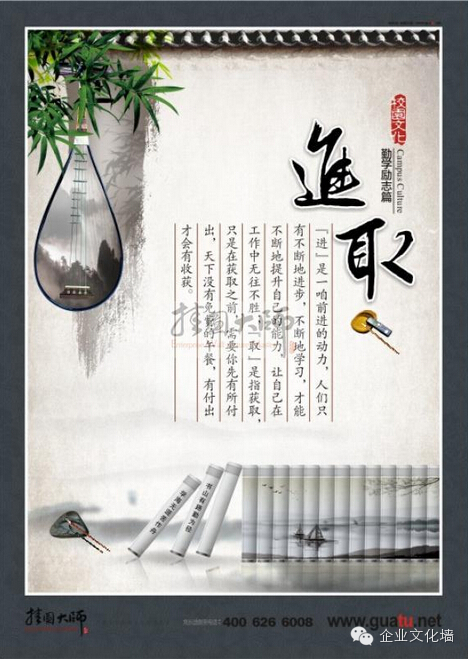 校园文化
Campus Culture
勤学励志篇
進取
「进」是一咱前进的动力，人们只
有不断地进步，不断地学习，才能
不断地提升自己的能力，让自己在
工作中无往不胜；「取」是指获取，
只是在获取之前，需要你先有所付
出，天下没有免费的午餐，有付出
才会有收获。
挂图大师
书山有路勤为径
学海无涯苦作舟
挂图大师
400 626 6008
www.guatu.net
企业文化墙